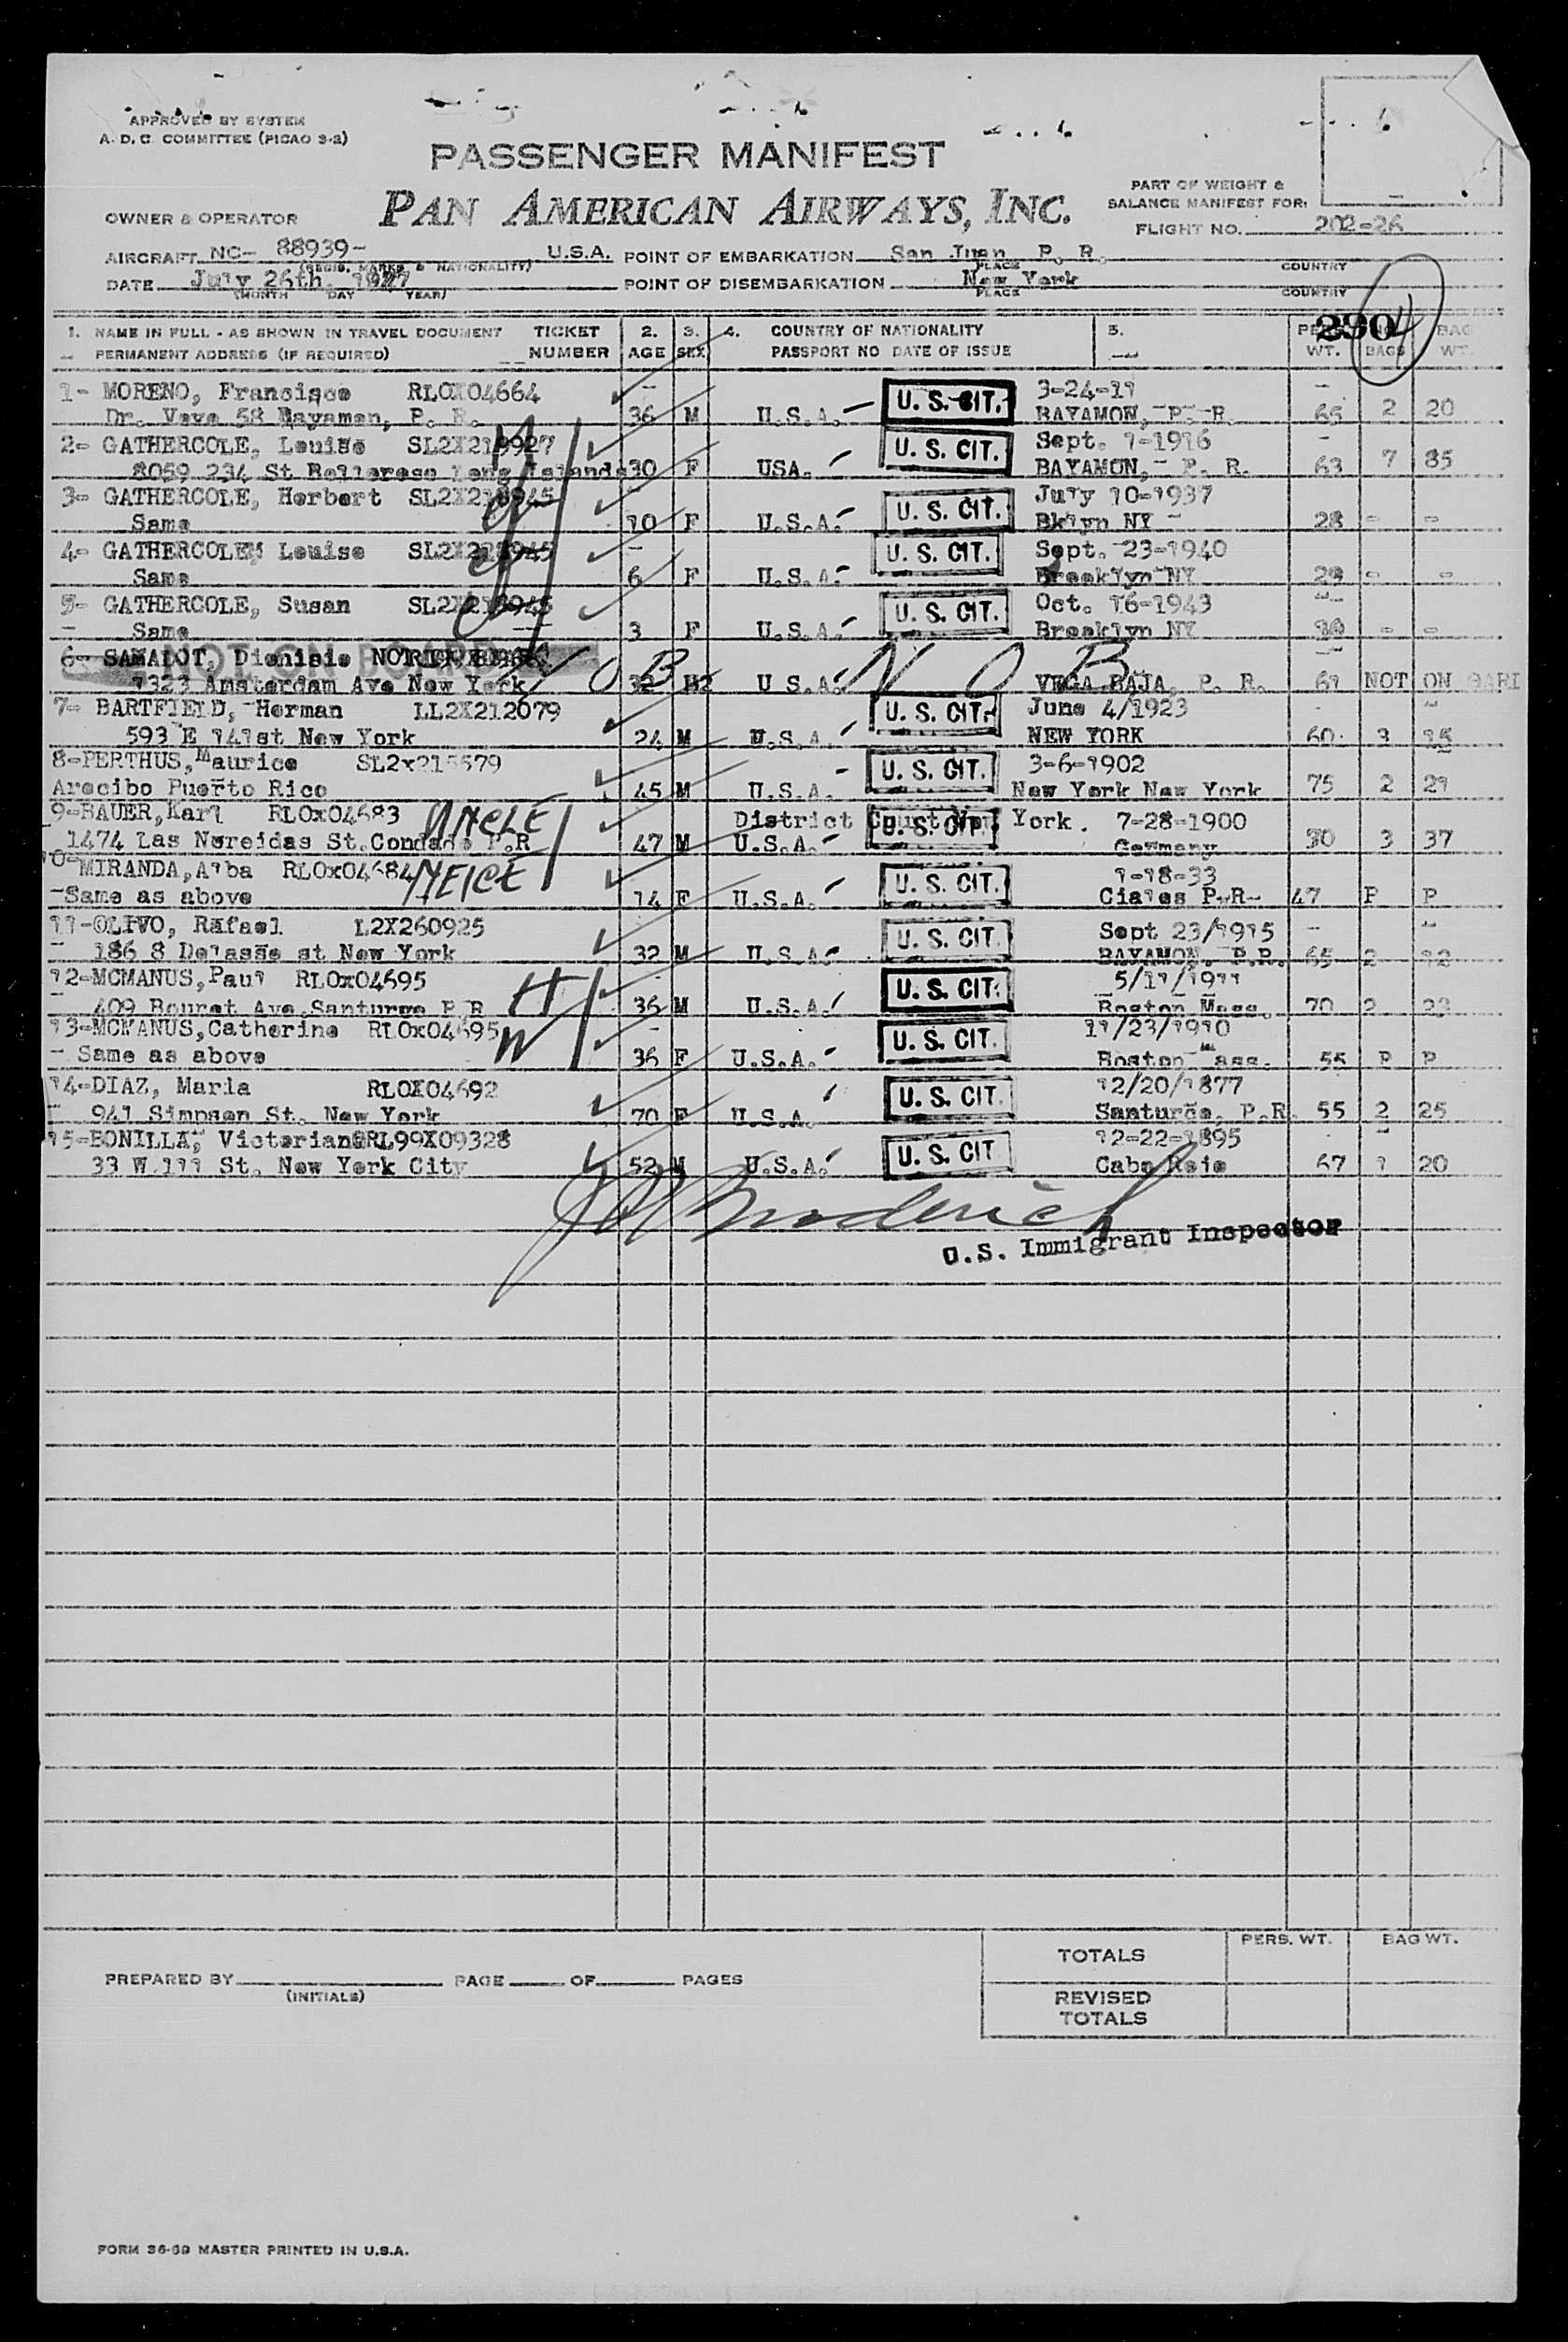 APPROVED BY SYSTEM
A. D. C. COMMITTEE (PICAO 3-2)
PASSENGER MANIFEST
PAN AMERICAN AIRWAYS, INC.
PART OF WEIGHT &
BALANCE MANIFEST FOR:
FLIGHT NO. 202-26
OWNER & OPERATOR
AIRCRAFT NC- 88939- U.S.A. POINT OF EMBARKATION San Juan P. R.
(REGIS. MARKS & NATIONALITY) PLACE COUNTRY
DATE July 26th, 1947 POINT OF DISEMBARKATION New York
(MONTH DAY YEAR) PLACE COUNTRY
290
1. NAME IN FULL - AS SHOWN IN TRAVEL DOCUMENT TICKET 2. 3. 4. COUNTRY OF NATIONALITY 5. PERS. BAG
PERMANENT ADDRESS (IF REQUIRED) NUMBER AGE SEX PASSPORT NO DATE OF ISSUE WT. BAGS WT.
1- MORENO, Francisco RLOX04664 U. S. CIT. 3-24-11
Dr. Veve 58 Bayamon, P. R. 36 M U.S.A. BAYAMON, P. R. 65 2 20
2- GATHERCOLE, Louise SL2X219927 U. S. CIT. Sept. 1-1916
8059 234 St Bellerese Long Islands 30 F USA. BAYAMON, P. R. 63 7 85
3- GATHERCOLE, Herbert U. S. CIT. July 10-1937
Same 10 F U.S.A. Bklyn NY 28 - -
4- GATHERCOLE, Louise U. S. CIT. Sept. 23-1940
Same 6 F U.S.A. Brooklyn NY 29 - -
5- GATHERCOLE, Susan U. S. CIT. Oct. 16-1943
Same 3 F U.S.A. Brooklyn NY 30 - -
6- SAMALOT, Dionisio NOT ON BOARD
1323 Amsterdam Ave New York N O B 32 U S.A. N O B VEGA BAJA, P. R. 61 NOT ON BARD
7- BARTFIELD, Herman LL2X212079 U. S. CIT. June 4/1923
593 E 141st New York 24 M U.S.A. NEW YORK 60 3 15
8-PERTHUS, Maurice SL2x215579 U. S. CIT. 3-6-1902
Arecibo Puerto Rico 45 M U.S.A. New York New York 75 2 21
9-BAUER, Karl RLOx04683 UNCLE District Court New York. 7-28-1900
1474 Las Nereidas St.Condado P.R 47 M U.S.A. U. S. CIT. Germany 90 3 37
10-MIRANDA, Alba RLOx04684 NEICE U. S. CIT. 1-18-33
Same as above 14 F U.S.A. Ciales P.R- 47 P P
11-OLIVO, Rafael L2X260925 U. S. CIT. Sept 23/1915
186 S Delasse st New York 32 M U.S.A. BAYAMON, P.R. 65 2 12
12-MCMANUS, Paul RLOx04695 H U. S. CIT. 5/11/1911
409 Bouret Ave.Santurse P R 36 M U.S.A. Boston Mass. 70 2 23
13-MCMANUS, Catherine RLOx04695 W U. S. CIT. 11/23/1910
Same as above 36 F U.S.A. Boston Mass. 55 P P
14-DIAZ, Maria RLOX04692 U. S. CIT. 12/20/1877
941 Simpson St. New York 70 F U.S.A. Santurce, P.R. 55 2 25
15-BONILLA, Victoriano RL99X09328 U. S. CIT 12-22-1895
33 W 111 St. New York City 52 M U.S.A. Cabo Rojo 67 1 20
U.S. Immigrant Inspector
TOTALS PERS. WT. BAG WT.
PREPARED BY PAGE OF PAGES
(INITIALS)
REVISED
TOTALS
FORM 36-69 MASTER PRINTED IN U.S.A.